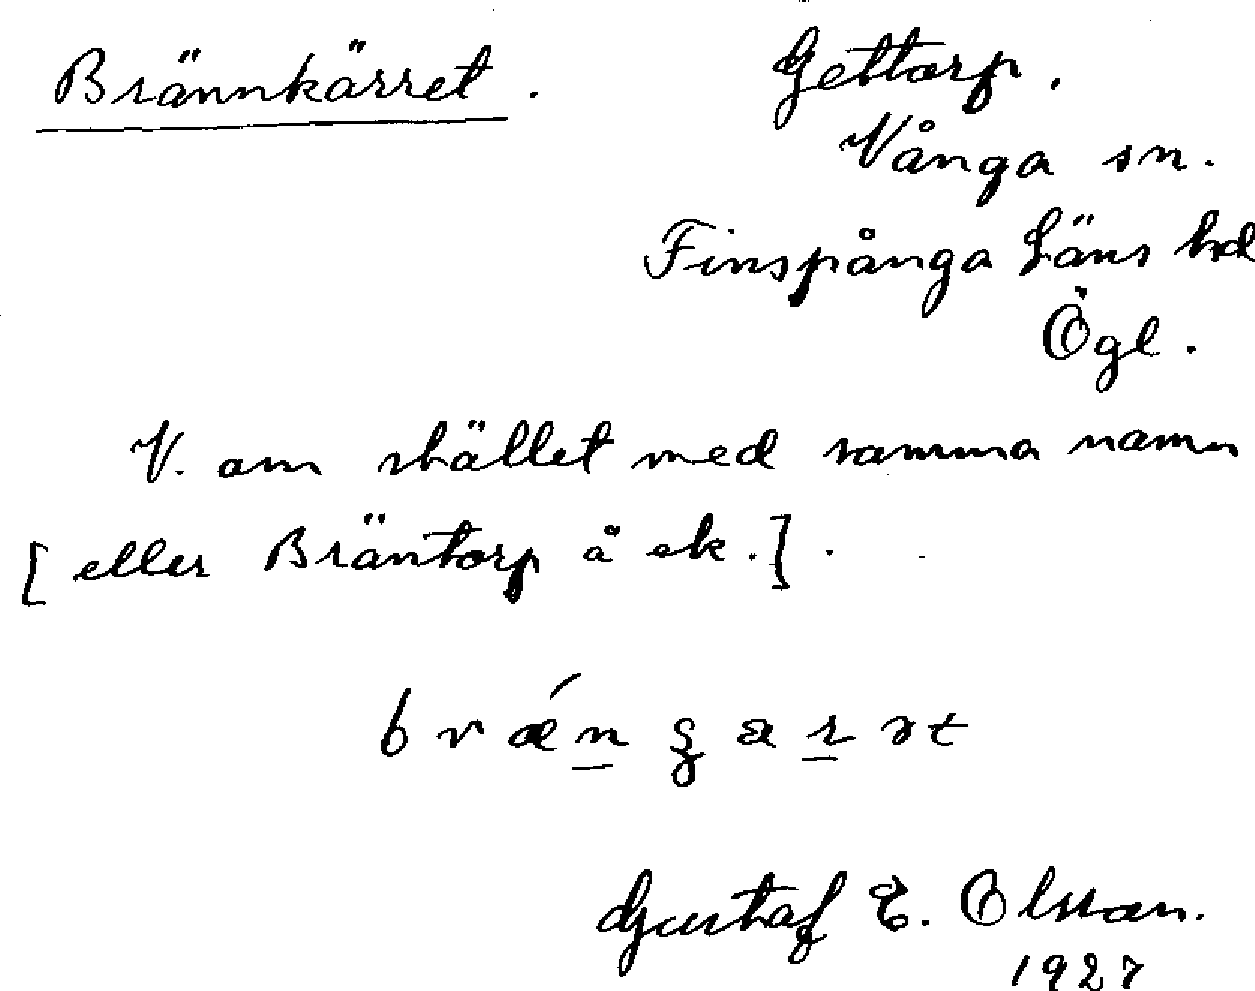 Brännkärret. Gettorp.
Vånga sn.
Finspånga Läns hd
Ögl.
V. om stället med samma namn
[eller Bräntorp å ek.].
Gustaf E. Olsson.
1927